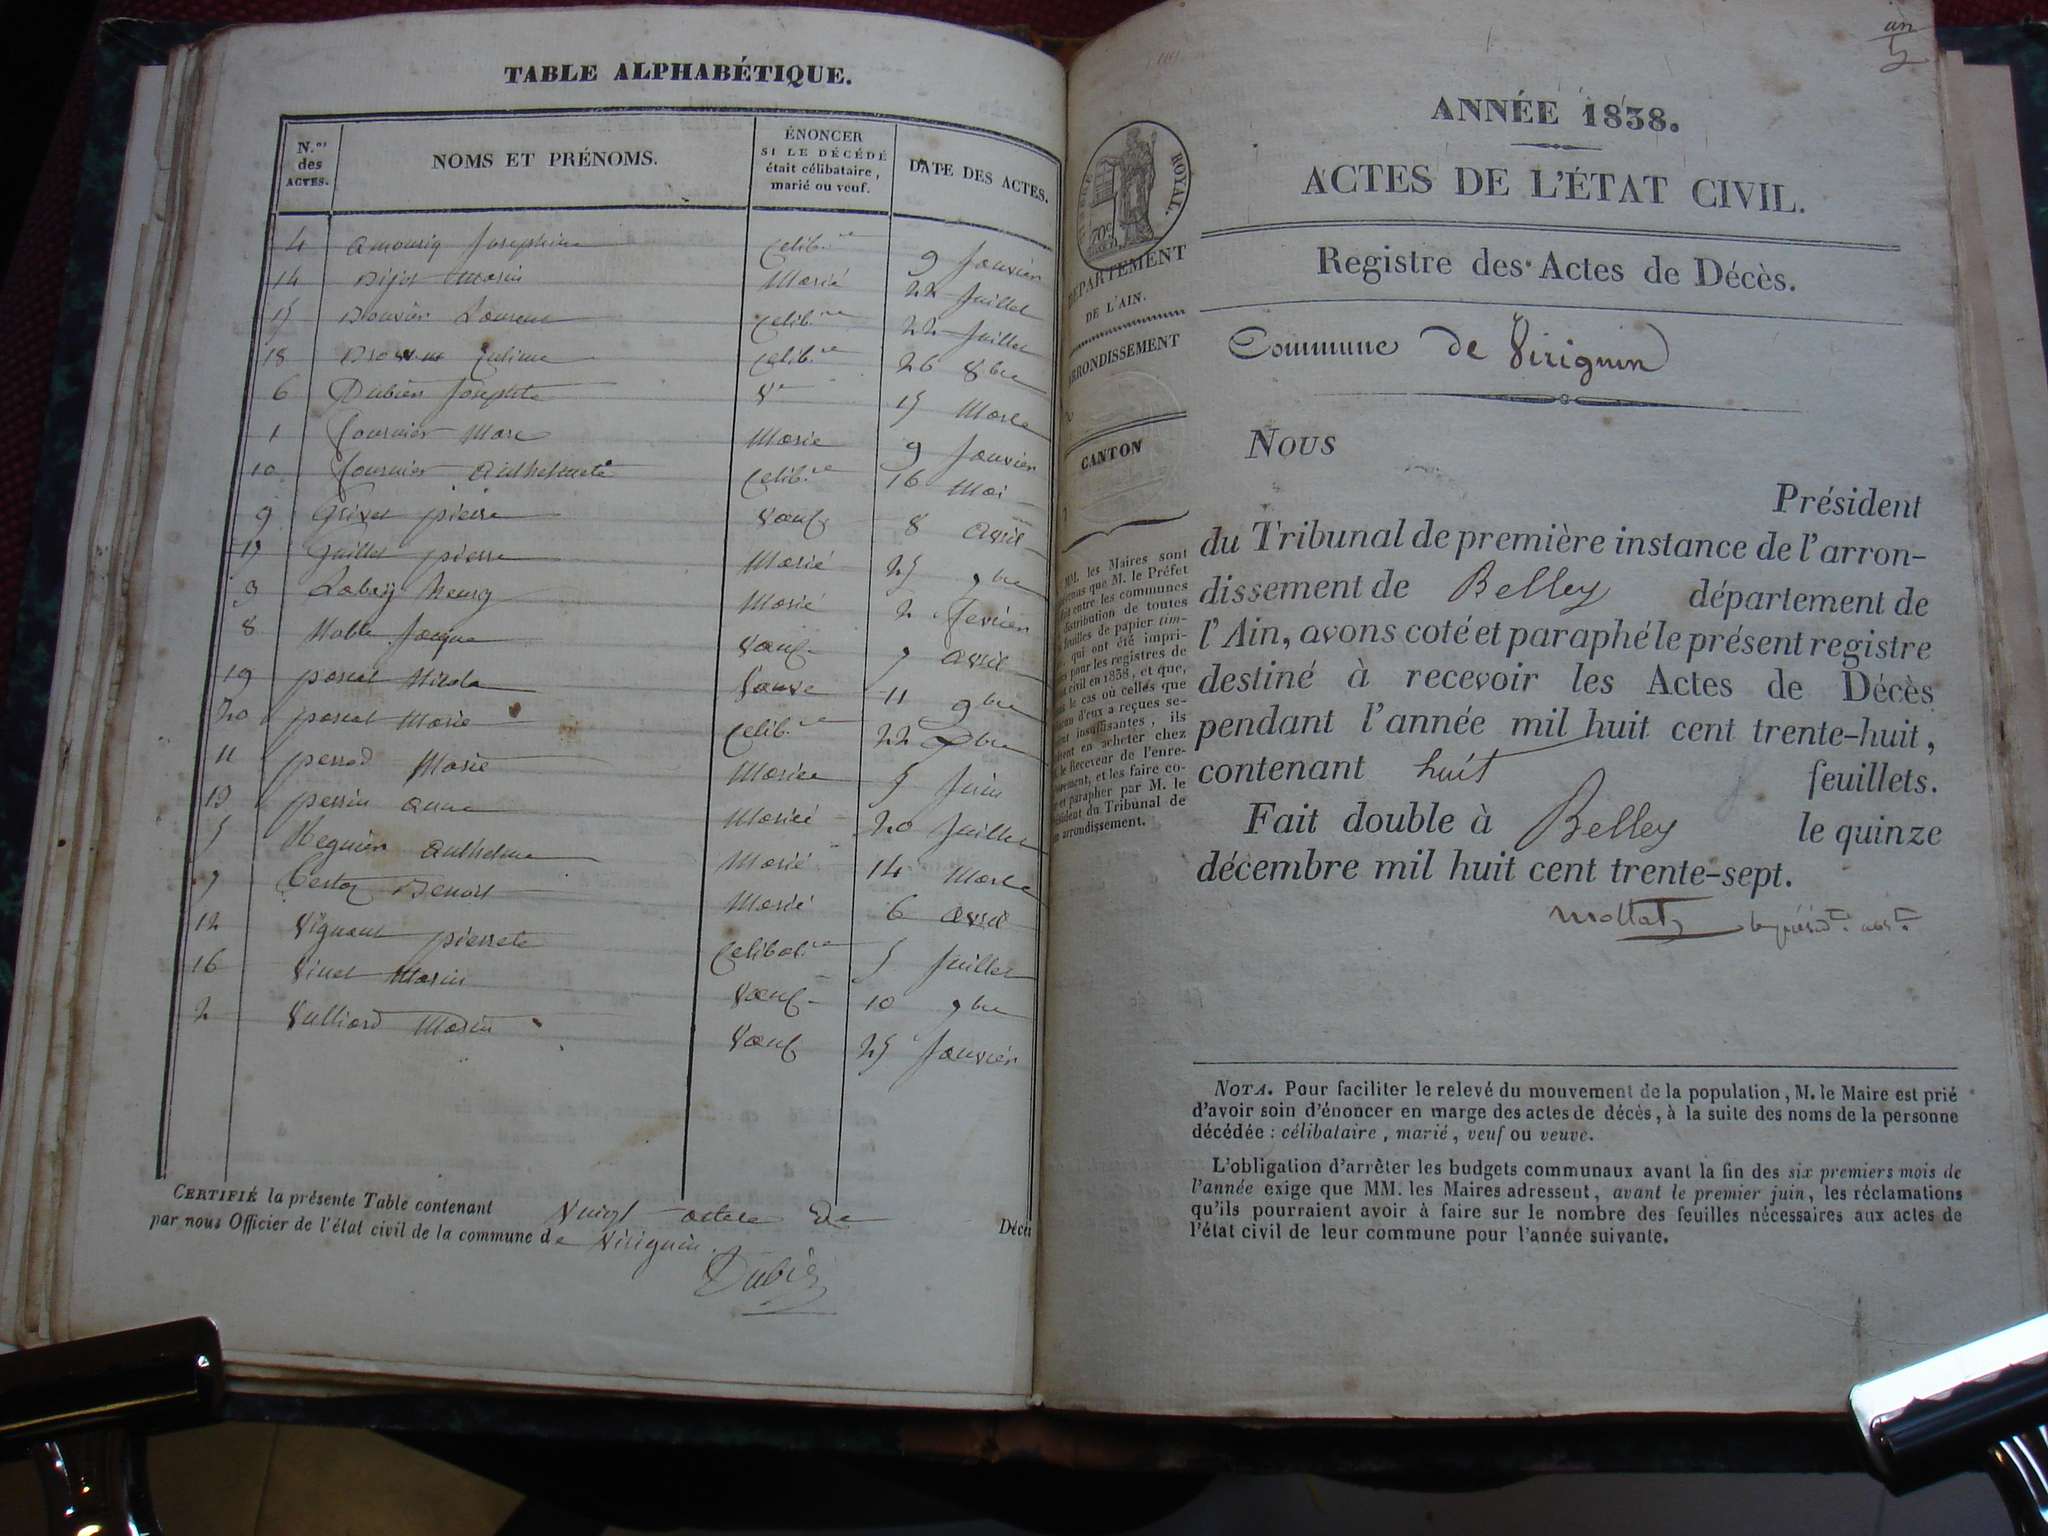 TABLE ALPHABÉTIQUE.
N.os des ACTES.
NOMS ET PRÉNOMS.
ÉNONCER
SI LE DÉCÉDÉ
était célibataire,
marié ou veuf.
DATE DES ACTES.
4 Josephine Celib.re 9 Janvier
14 Marin Marié 22 Juillet
15 Bouvier Laurent Celib.re 22 Juillet
18 Celib.re 26 8bre
6 Dubien Josephte Ve 15 Mars
1 Fournier Marc Marié 9 Janvier
10 Fournier Anthelmete Celib.re 16 Mai
9 Grivet pierre Vœuf 8 avril
17 Guillet pierre Marié 25 9bre
3 Marié 2 fevrier
8 Jacque Vœuf 7 avril
19 pascal Nicola 11 9bre
20 pascal Marie Celib.re 22
11 perrod Marie Mariée 5 Juin
13 perrin anne Mariée 20 Juillet
5 Reguier anthelme Marié 14 Mars
7 Benoit Marié 6 avril
12 pierrete Celibat.re 5 Juillet
16 Vinet Marin Vœuf 10 9bre
2 Vulliard Marin Vœuf 25 Janvier
CERTIFIÉ la présente Table contenant Vuigt actes De Décè
par nous Officier de l'état civil de la commune de Virignin.
Dubié
an
5
ANNÉE 1838.
ACTES DE L'ÉTAT CIVIL.
Registre des Actes de Décès.
Commune de Virignin
ROYAL.
70c
DÉPARTEMENT
DE L'AIN.
ARRONDISSEMENT
CANTON
MM. les Maires sont
que M. le Préfet
entre les communes
distribution de toutes
feuilles de papier tim-
qui ont été impri-
pour les registres de
civil en 1838, et que,
le cas où celles que
d'eux a reçues se-
insuffisantes, ils
en acheter chez
le Receveur de l'enre-
, et les faire co-
et parapher par M. le
Président du Tribunal de
arrondissement.
NOUS
Président
du Tribunal de première instance de l'arron-
dissement de Belley département de
l'Ain, avons coté et paraphé le présent registre
destiné à recevoir les Actes de Décès
pendant l'année mil huit cent trente-huit,
contenant huit feuillets.
Fait double à Belley le quinze
décembre mil huit cent trente-sept.
NOTA. Pour faciliter le relevé du mouvement de la population, M. le Maire est prié
d'avoir soin d'énoncer en marge des actes de décès, à la suite des noms de la personne
décédée : célibataire, marié, veuf ou veuve.
L'obligation d'arrêter les budgets communaux avant la fin des six premiers mois de
l'année exige que MM. les Maires adressent, avant le premier juin, les réclamations
qu'ils pourraient avoir à faire sur le nombre des feuilles nécessaires aux actes de
l'état civil de leur commune pour l'année suivante.